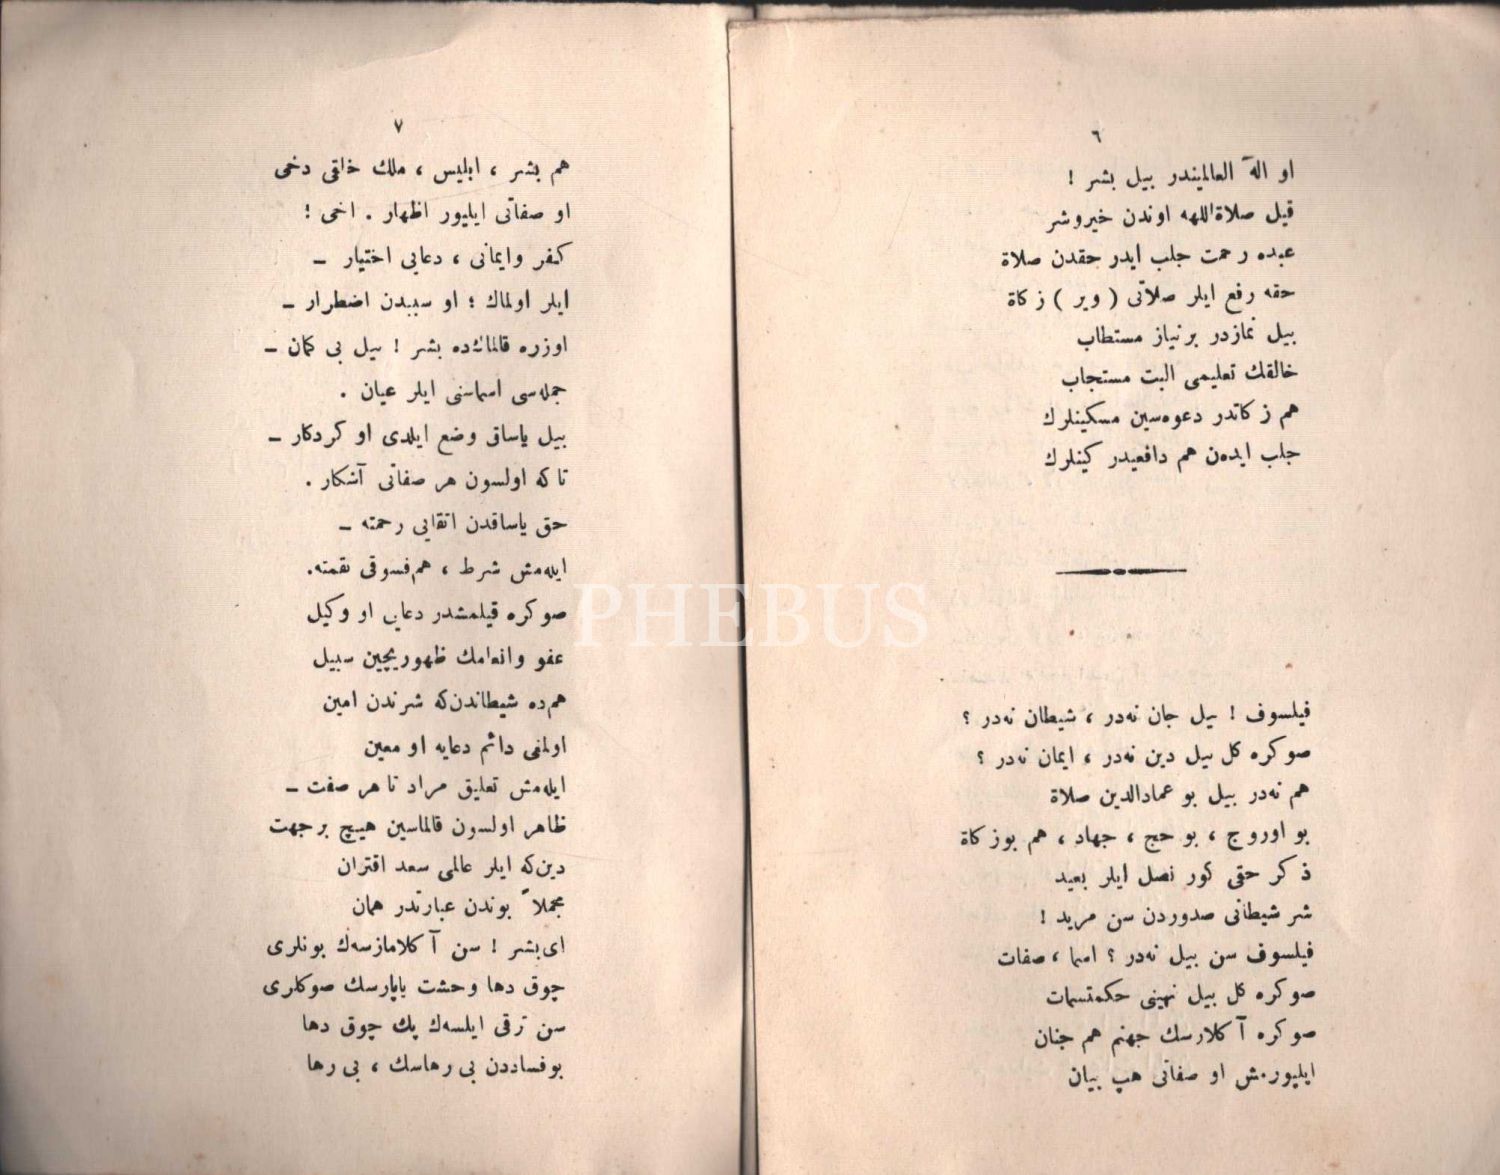 ٦
او اله العالميندر بيل بشر !
قيل صلاة‌اللهه اوندن خيروشر
عبده رحمت جلب ايدر حقدن صلاة
حقه رفع ايلر صلاتی ( وير ) زكاة
بيل نمازدر برنياز مستطاب
خالقك تعليمی البت مستجاب
هم زكاتدر دعوه‌سين مسكينلرك
جلب ايده‌ن هم دافعيدر كينلرك
فيلسوف ! بيل جان نه‌در ، شيطان نه‌در ؟
صوكره كل بيل دين نه‌در ، ايمان نه‌در ؟
هم نه‌در بيل بو عمادالدين صلاة
بو اوروج ، بو حج ، جهاد ، هم بوزكاة
ذكر حقی كور نصل ايلر بعيد
شر شيطانی صدوردن سن مريد !
فيلسوف سن بيل نه‌در ؟ اسما ، صفات
صوكره كل بيل نهينی حكمتسمات
صوكره آكلارسك جهنم هم جنان
ايليورمش او صفاتی هپ بيان
٧
هم بشر ، ابليس ، ملك خلقی دخی
او صفاتی ايليور اظهار . اخی !
كفر وايمانی ، دعايی اختيار –
ايلر اولماك ؛ او سببدن اضطرار –
اوزره قالماك‌ده بشر ! بيل بی كمان –
جمله‌سی اسماسنی ايلر عيان .
بيل ياساق وضع ايلدی او كردكار –
تا كه اولسون هر صفاتی آشكار .
حق ياساقدن اتقايی رحمته –
ايله‌مش شرط ، هم‌فسوقی نقمته.
صوكره قيلمشدر دعايی او وكيل
عفو وانعامك ظهوريچين سبيل
هم‌ده شيطاندن‌كه شرندن امين
اولمغی دائم دعايه او معين
ايله‌مش تعليق مراد تا هر صفت –
ظاهر اولسون قالماسين هيچ برجهت
دين‌كه ايلر عالمی سعد اقتران
مجملاً بوندن عبارتدر همان
ای‌بشر ! سن آكلامازسه‌ك بونلری
چوق دها وحشت ياپارسك صوكلری
سن ترقی ايلسه‌ك پك چوق دها
بوفساددن بی رهاسك ، بی رها
PHEBUS